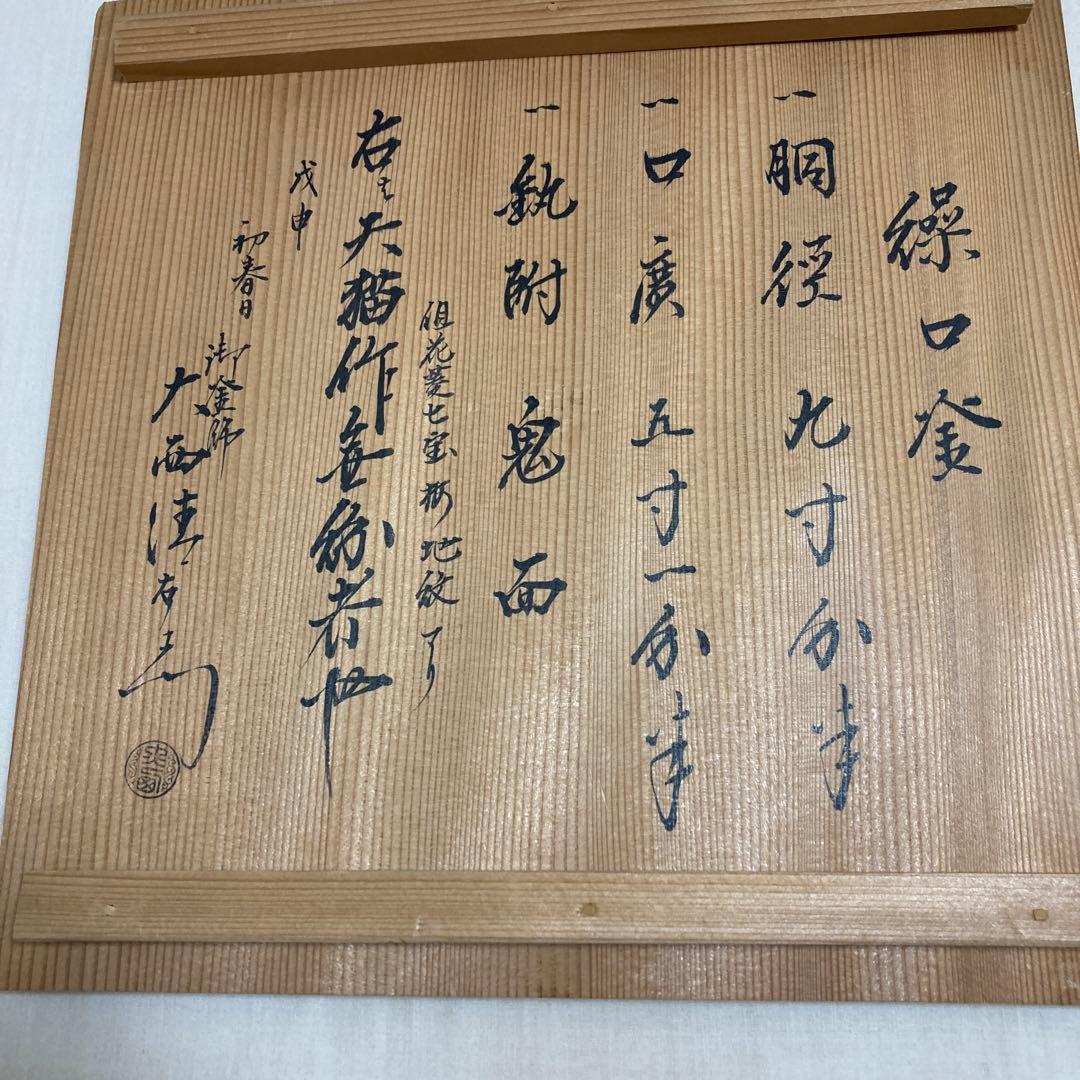 繰口釜
一 胴径 九寸分半
一 口廣 五寸一分半
一 釻附 鬼面
但花菱七宝 地紋アリ
右ハ天猫作無紛者也
戊申
初春日
御釜師
大西清右衛門
大西